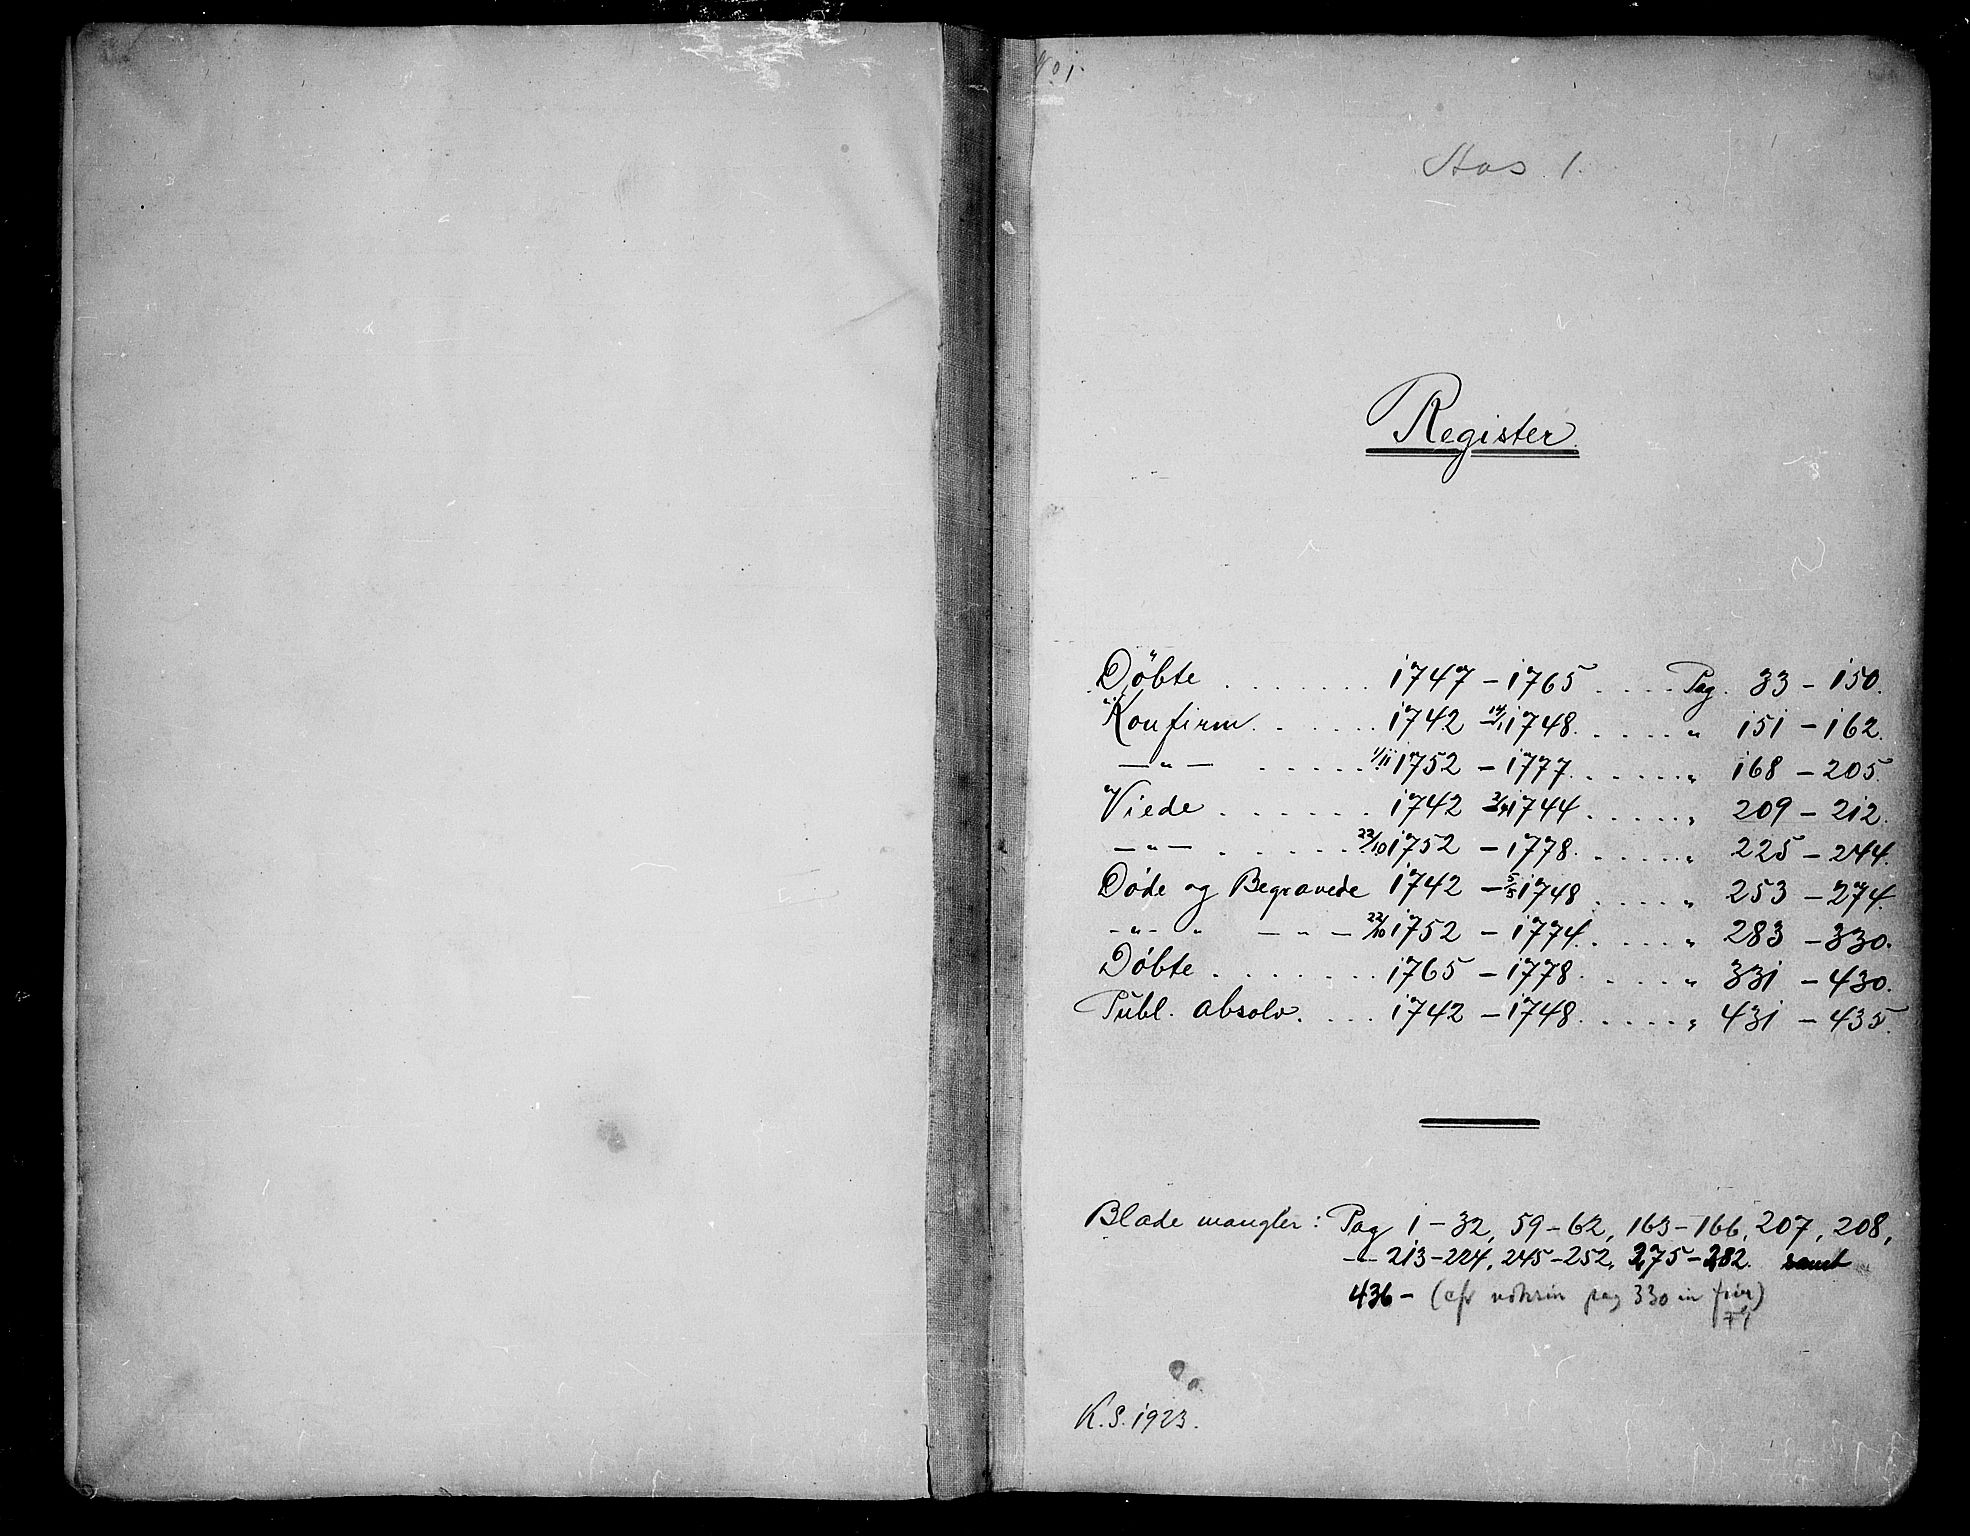 No 1.
Aas 1.
Register.
Döbte . . . . . . . . 1747 – 1765 . . . . Pag. 33 – 150.
Konfirm. . . . . . 1742 – 14/1 1748. . . . . „ 151 – 162.
— „ — . . . . . 1/11 1752 – 1777. . . . . „ 168 – 205.
Viede . . . . . . 1742 – 1744 . . . . . „ 209 – 212.
— „ — . . . . . 22/10 1752 – 1778. . . . . „ 225 – 244.
Döde og Begravede 1742 – 5/5 1748 . . . . „ 253 – 274.
– „ – „ — „ — 22/10 1752 – 1774. . . . „ 283 – 330.
Döbte . . . . . . . 1765 – 1778. . . . „ 331 – 430.
Publ. absolv. . . . 1742 – 1748. . . . . „ 431 – 435.
Blade mangler: Pag 1 – 32, 59 – 62, 163 – 166, 207, 208,
— „ — 213 – 224, 245 – 252, 275 – 282. samt
436 – (cfr notisen pag 330 in fine)
K.S. 1923.